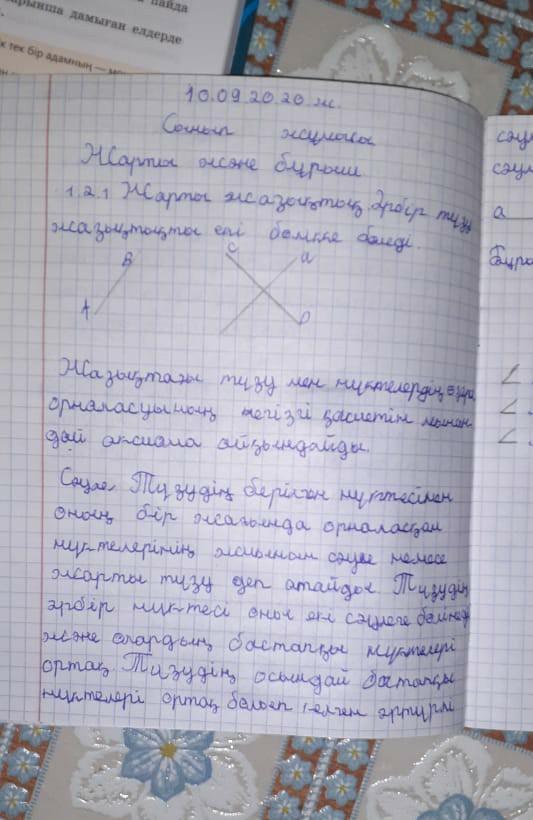 пайда
арынша дамыған елдерде
к тек бір адамның —
10.09.2020 ж.
Сынып жұмысы
Жарты және бұрыш
1.2.1 Жарты жазықтық. Әрбір түзу
жазықтықты екі бөлікке бөледі.
B
C
a
A
D
Жазықтағы түзу мен нүктелердің өзара
орналасуының негізгі қасиетін мынан-
дай аксиома айқындайды.
Сәуле. Түзудің берілген нүктесінен
оның бір жағында орналасқан
нүктелерінің жиынын сәуле немесе
жарты түзу деп атайды. Түзудің
әрбір нүктесі оны екі сәулеге бөледі
және олардың бастапқы нүктелері
ортақ. Түзудің осындай бастапқы
нүктелері ортақ болып келген әртүрлі
сәу
сәул
a
Бұры
∠
∠
∠